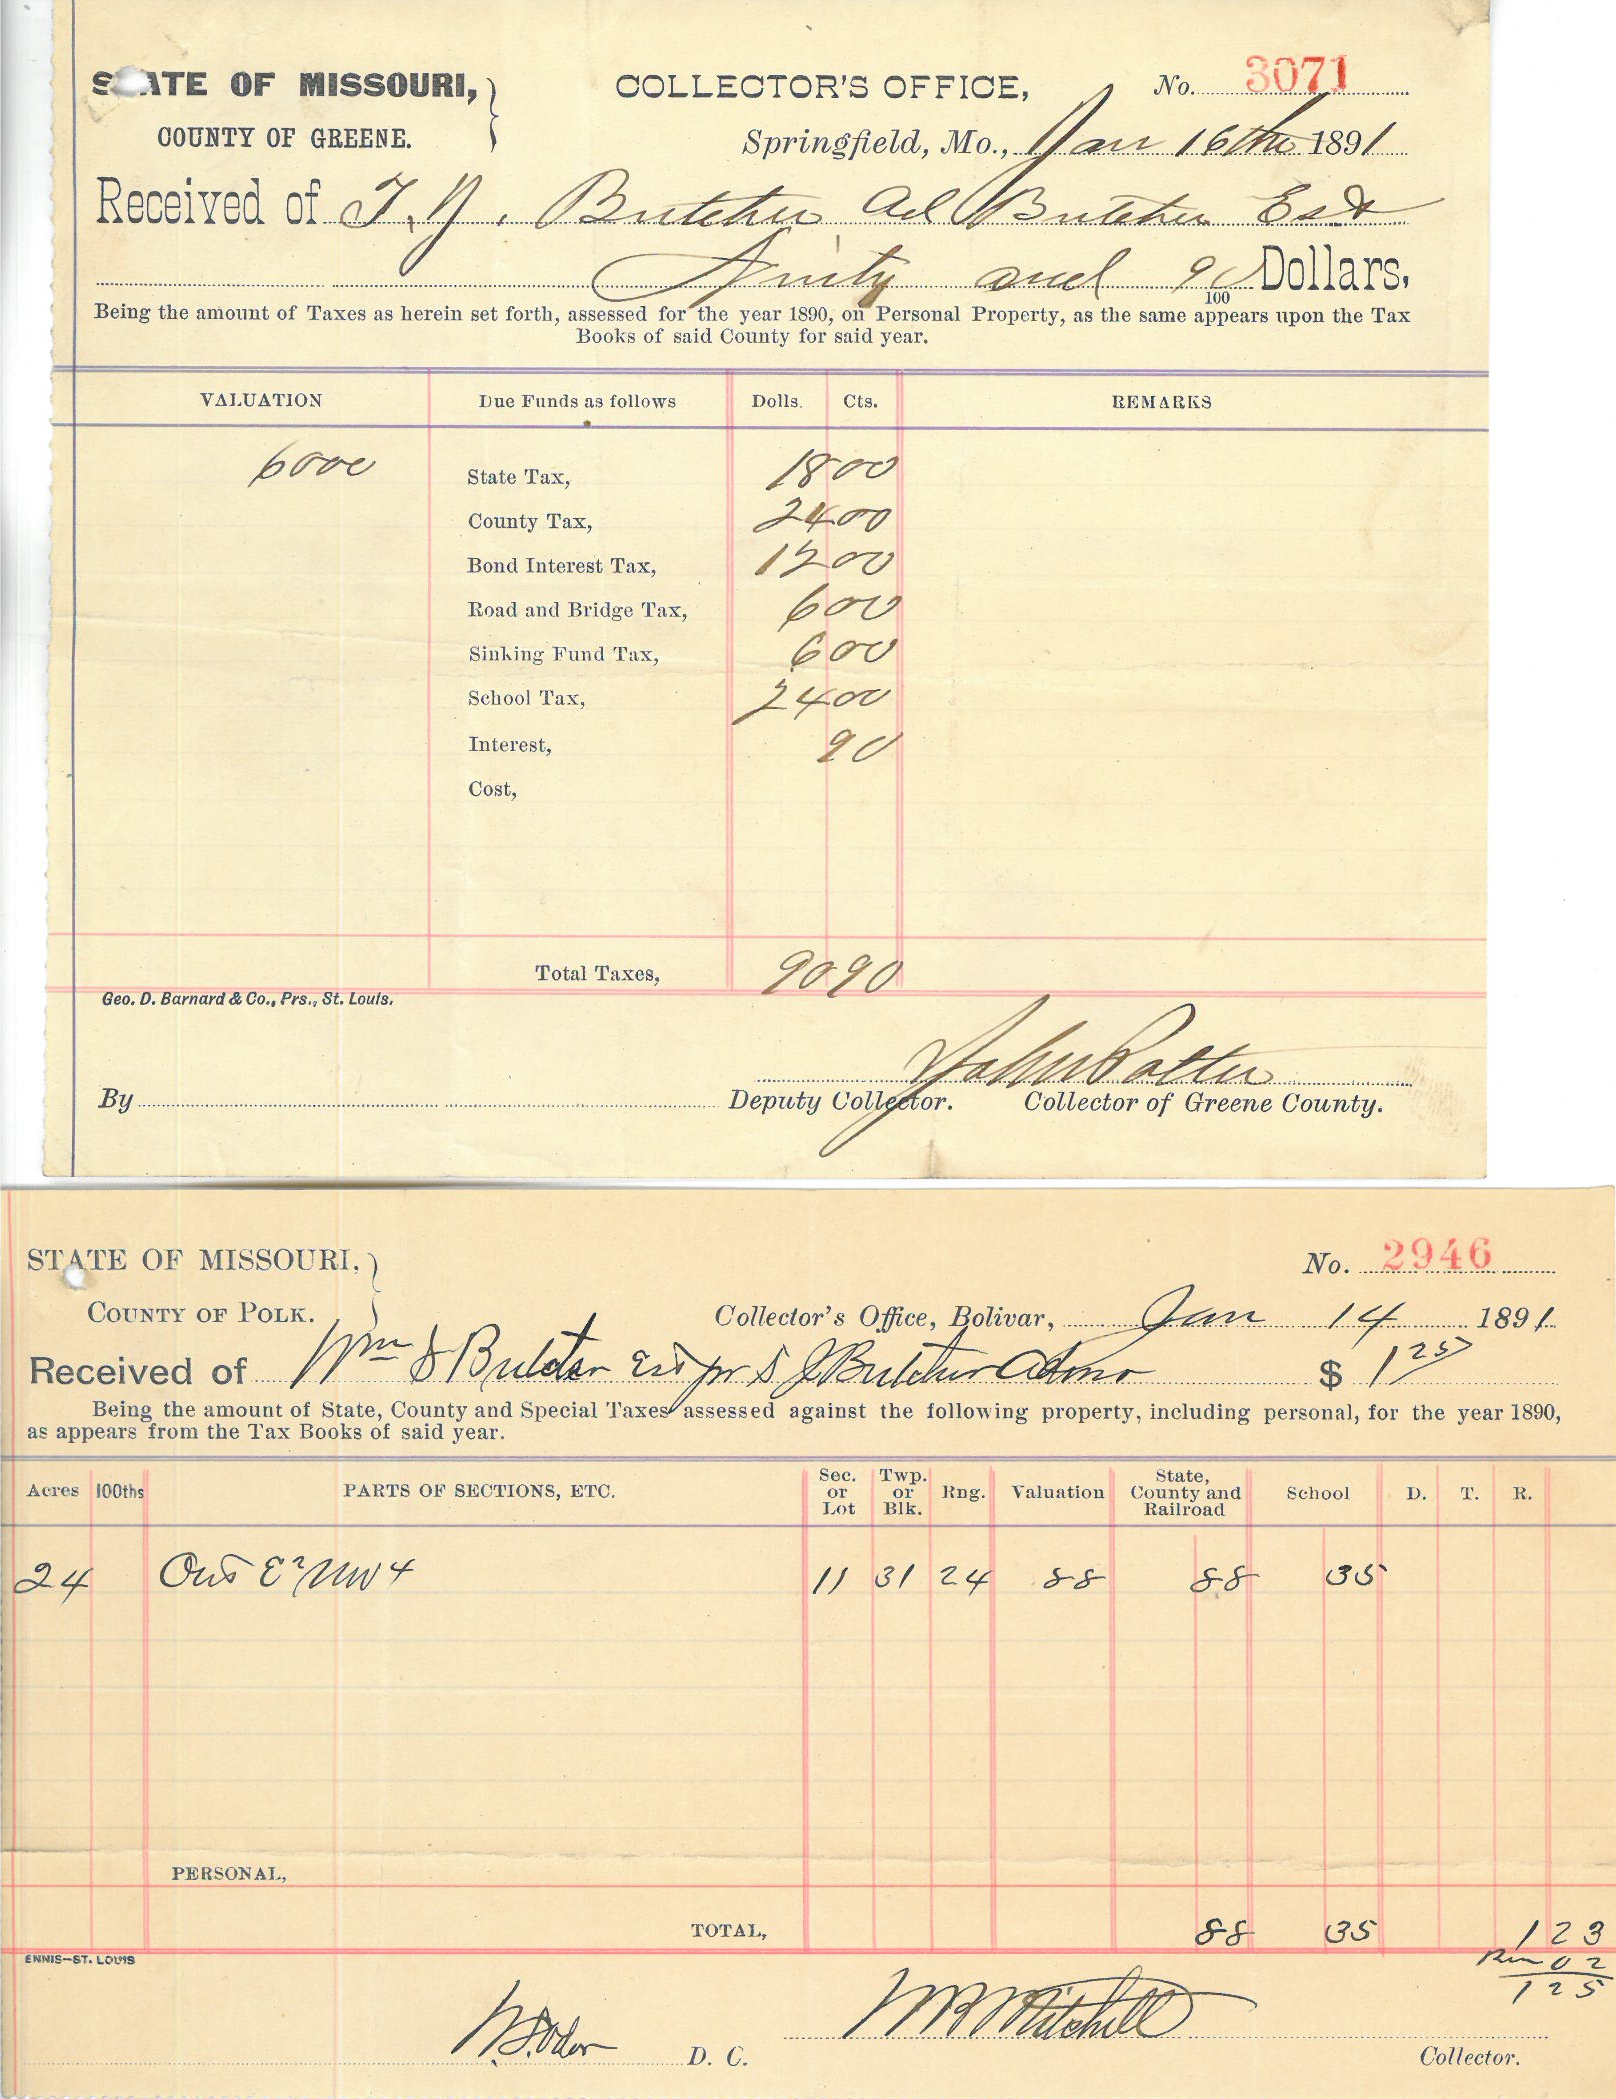 STATE OF MISSOURI, COLLECTOR'S OFFICE, No. 3071
COUNTY OF GREENE. Springfield, Mo., Jan 16th 1891
Received of Butcher Ad Butcher Est
Ninty and 90/100 Dollars.
Being the amount of Taxes as herein set forth, assessed for the year 1890, on Personal Property, as the same appears upon the Tax
Books of said County for said year.
VALUATION Due Funds as follows Dolls. Cts. REMARKS
6000 State Tax, 18 00
County Tax, 24 00
Bond Interest Tax, 12 00
Road and Bridge Tax, 6 00
Sinking Fund Tax, 6 00
School Tax, 24 00
Interest, 90
Cost,
Total Taxes, 90 90
Geo. D. Barnard & Co., Prs., St. Louis.
John Potter
By Deputy Collector. Collector of Greene County.
STATE OF MISSOURI, No. 2946
COUNTY OF POLK. Collector's Office, Bolivar, Jan 14 1891
Received of Wm Butcher Est pr Butcher Admr $ 1 25
Being the amount of State, County and Special Taxes assessed against the following property, including personal, for the year 1890,
as appears from the Tax Books of said year.
Acres 100ths PARTS OF SECTIONS, ETC. Sec. or Lot Twp. or Blk. Rng. Valuation State, County and Railroad School D. T. R.
24 E2 NW4 11 31 24 88 88 35
PERSONAL,
TOTAL, 88 35 1 23
ENNIS-ST. LOUIS 02
1 25
Mitchell
D. C. Collector.